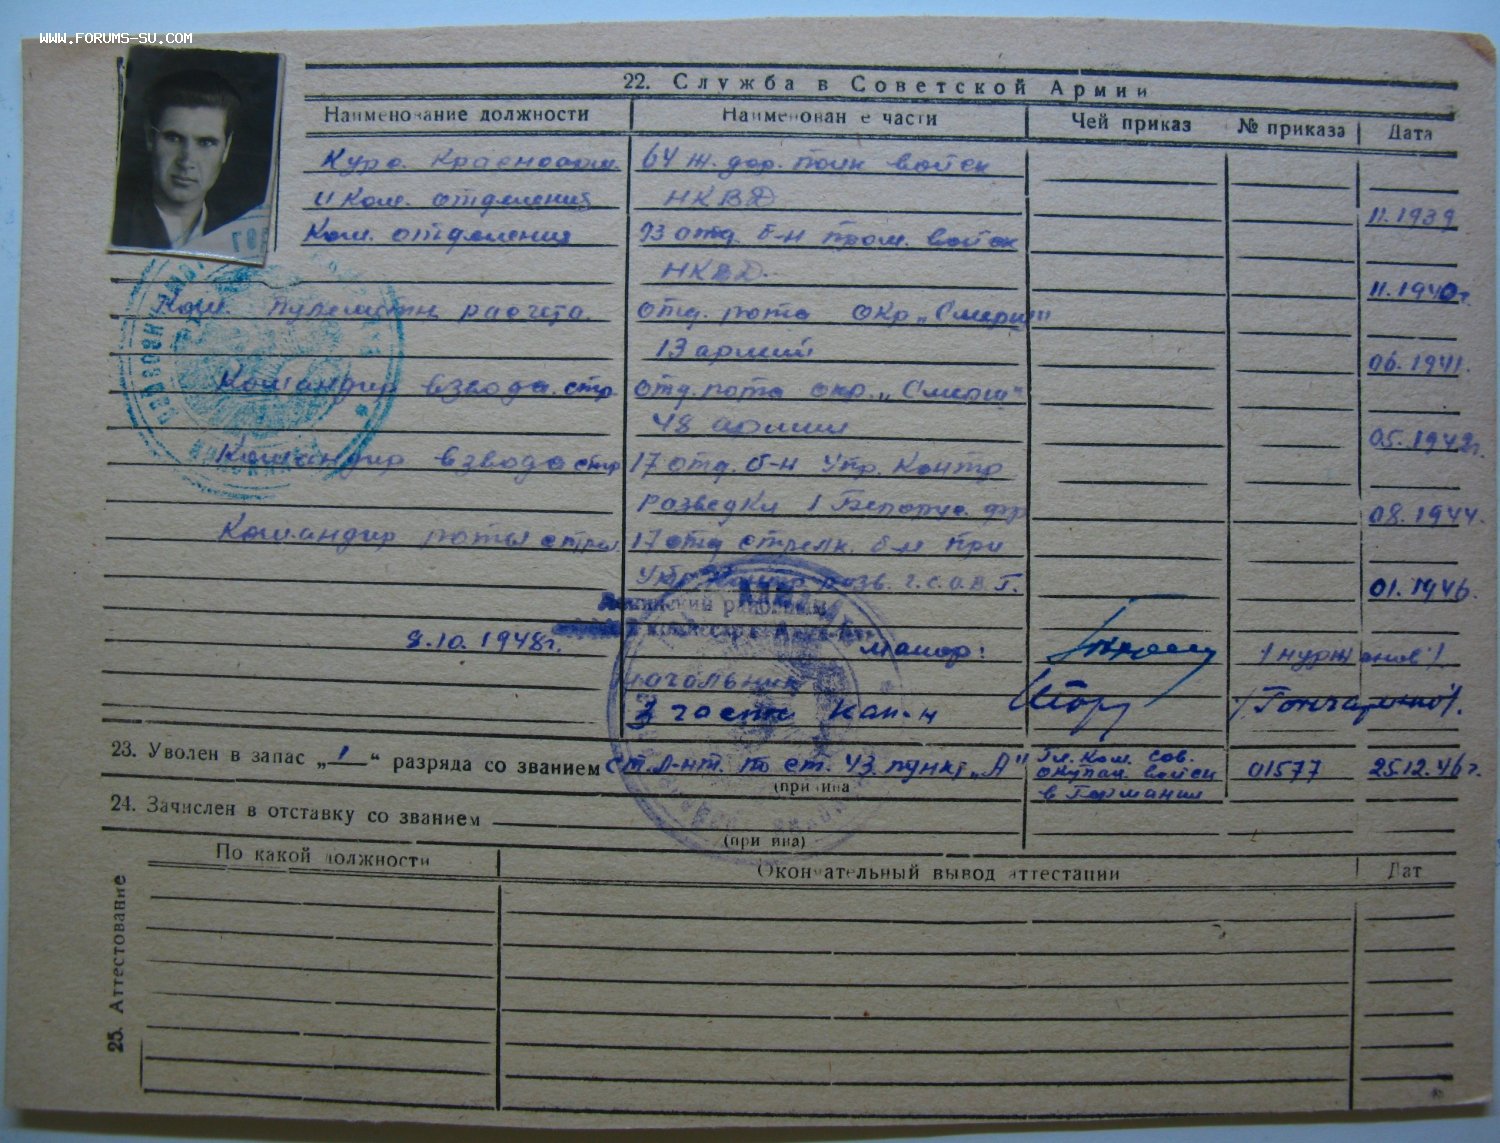 WWW.FORUMS-SU.COM
22. Служба в Советской Армии
Наименование должности Наименован е части Чей приказ № приказа Дата
Курс. Красноарм. 64 ж. дор. полк войск
и Ком. отделения НКВД 11.1939
Ком. отделения 93 отд. б-н пром. войск
НКВД. 11.1940г.
Ком. пулеметн. расчета. отд. рота окр „Смерш"
13 армии 06.1941.
Командир взвода стр отд. рота окр. „Смерш"
48 армии 05.1942г.
Командир взвода стр 17 отд. б-н Упр. Контр
разведки 1 Белорус. фр 08.1944.
Командир роты стрел. 17 отд стрелк. б-н при
Упр. Контр разв. г.с.о.в.Г. 01.1946.
8.10.1948г. майор: /нуржанов/
начальник
3 части кап-н /Гончаренко/.
23. Уволен в запас „1" разряда со званием ст. л-нт. по ст. 43 пункт „А" Гл. Ком. сов. окупац. войск в Германии 01577 25.12.46г.
(при ина
24. Зачислен в отставку со званием
(при ина)
25. Аттестование
По какой должности Окончательный вывод аттестации Дат